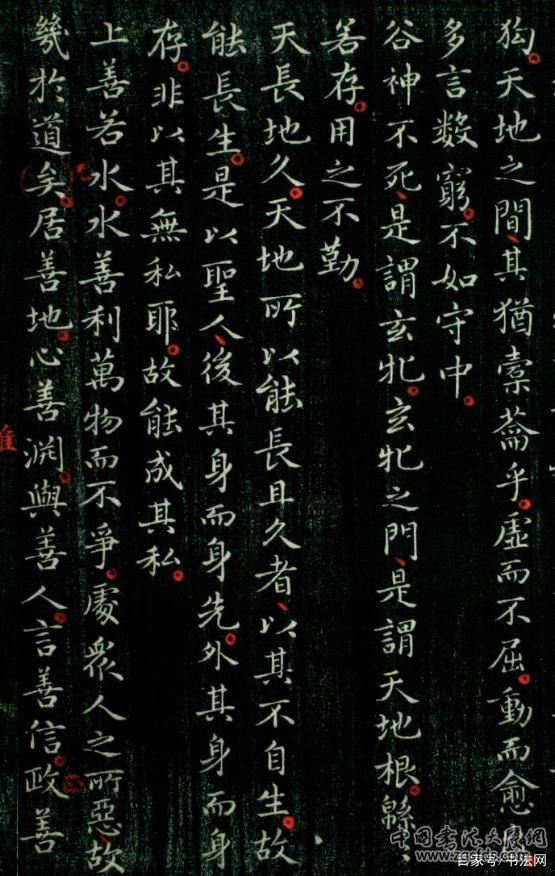 狗天地之間其猶橐籥乎虛而不屈動而愈
多言數窮不如守中
谷神不死是謂玄牝玄牝之門是謂天地根緜〻
若存用之不勤
天長地久天地所以能長且久者以其不自生故
能長生是以聖人後其身而身先外其身而身
存非以其無私耶故能成其私
上善若水水善利萬物而不爭處眾人之所惡故
幾於道矣居善地心善淵與善人言善信政善
百家号/书法网